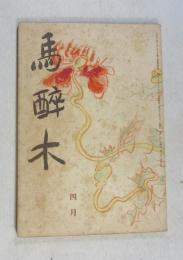 馬醉木
四月